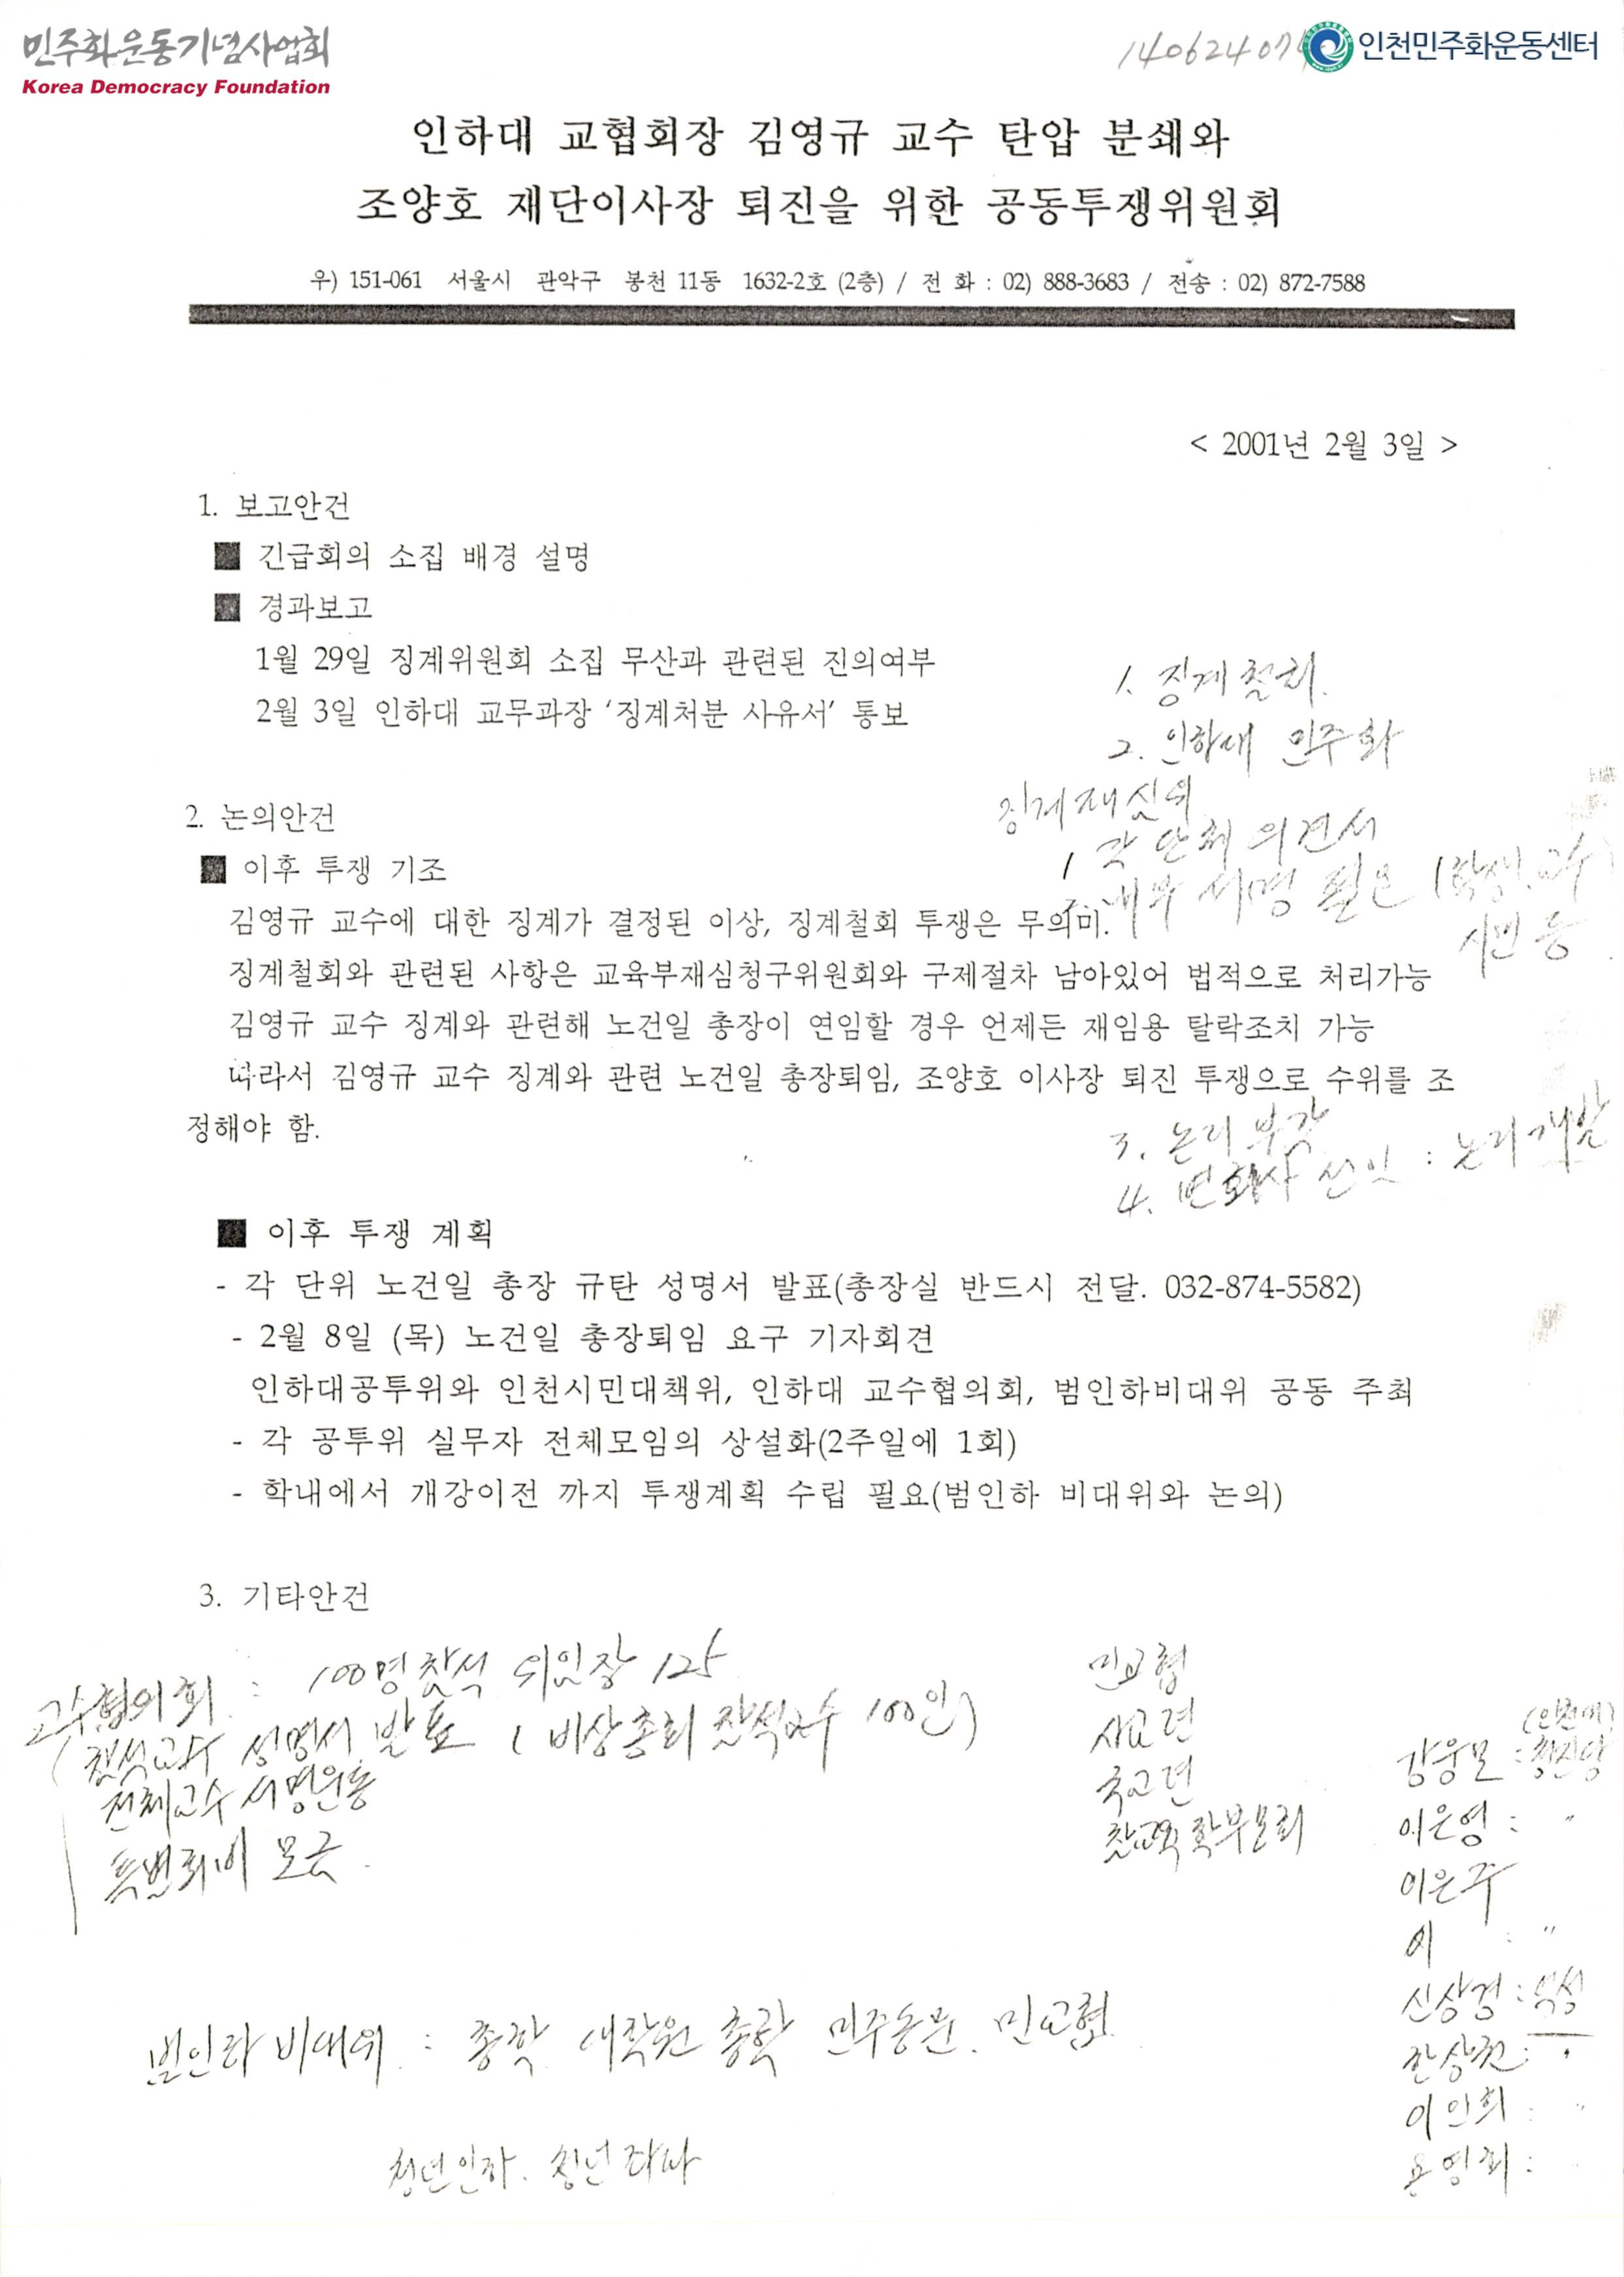 민주화운동기념사업회
Korea Democracy Foundation
14062407
인천민주화운동센터
인하대 교협회장 김영규 교수 탄압 분쇄와
조양호 재단이사장 퇴진을 위한 공동투쟁위원회
우) 151-061 서울시 관악구 봉천 11동 1632-2호 (2층) / 전 화 : 02) 888-3683 / 전송 : 02) 872-7588
< 2001년 2월 3일 >
1. 보고안건
■ 긴급회의 소집 배경 설명
■ 경과보고
1월 29일 징계위원회 소집 무산과 관련된 진의여부
2월 3일 인하대 교무과장 '징계처분 사유서' 통보
1. 징계철회.
2. 인하대 민주화
징계재심위
1 각 단체 의견서
서명 필요 (학생, 교수
시민 등
2. 논의안건
■ 이후 투쟁 기조
김영규 교수에 대한 징계가 결정된 이상, 징계철회 투쟁은 무의미.
징계철회와 관련된 사항은 교육부재심청구위원회와 구제절차 남아있어 법적으로 처리가능
김영규 교수 징계와 관련해 노건일 총장이 연임할 경우 언제든 재임용 탈락조치 가능
따라서 김영규 교수 징계와 관련 노건일 총장퇴임, 조양호 이사장 퇴진 투쟁으로 수위를 조
정해야 함.
3. 논리 부각
4. 변호사 선임 : 논리개발
■ 이후 투쟁 계획
- 각 단위 노건일 총장 규탄 성명서 발표(총장실 반드시 전달. 032-874-5582)
- 2월 8일 (목) 노건일 총장퇴임 요구 기자회견
인하대공투위와 인천시민대책위, 인하대 교수협의회, 범인하비대위 공동 주최
- 각 공투위 실무자 전체모임의 상설화(2주일에 1회)
- 학내에서 개강이전 까지 투쟁계획 수립 필요(범인하 비대위와 논의)
3. 기타안건
교수협의회 : 100명참석 위임장 125
(참석교수 성명서 발표 (비상총회 참석교수 100인)
전체교수 서명운동
특별회비 모금.
민교협
사교련
국교련
참교육학부모회
강웅모 :
이은영 : "
이은주
이 : "
신상경 :
한상권 :
이인희 : "
범인하 비대위 : 총학 대학원 총학 민주동문. 민교협.
청년인하.